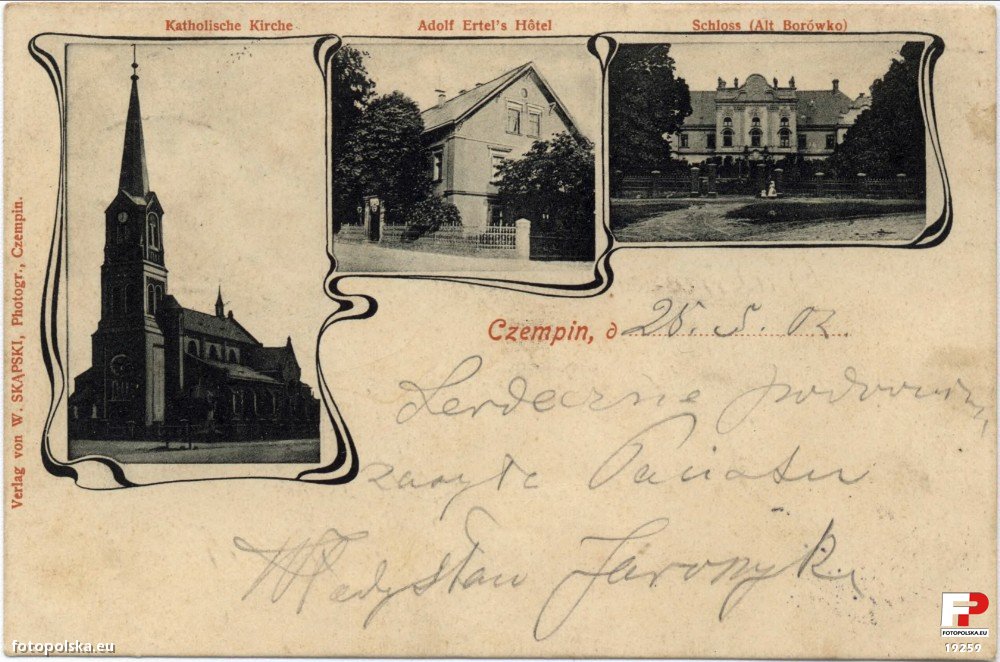 Katholische Kirche
Adolf Ertel's Hôtel
Schloss (Alt Borówko)
Verlag von W. SKĄPSKI, Photogr., Czempin.
Czempin, d 25. 5. 02
Serdeczne
Władysław
fotopolska.eu
FP
FOTOPOLSKA.EU
19259